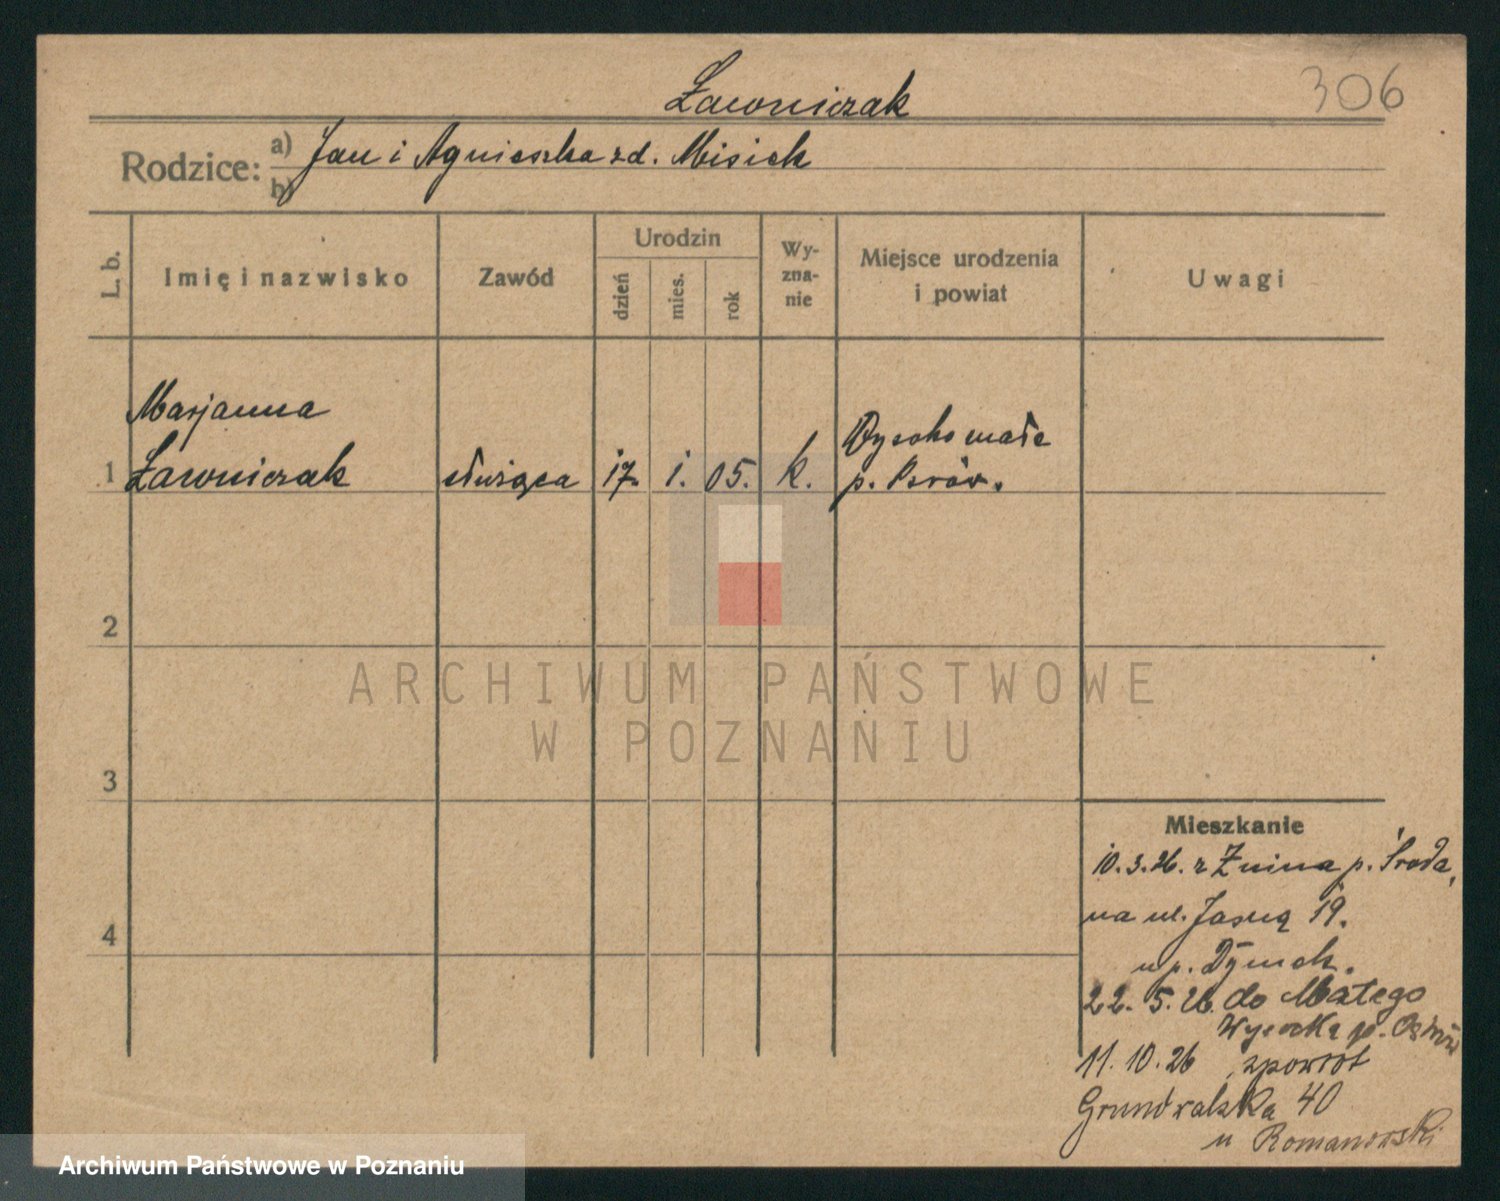 Ławniczak
306
Rodzice: a) Jan i Agnieszka zd. Misiek
b)
L. b.
Imię i nazwisko
Zawód
Urodzin
dzień
mies.
rok
Wy-
zna-
nie
Miejsce urodzenia
i powiat
Uwagi
Marjanna
1 Ławniczak służąca 17. 1. 05. k.
Wysocko małe
p. Ostrów.
2
3
4
ARCHIWUM PAŃSTWOWE
W POZNANIU
Mieszkanie
10.3.26. z Żnina p. Środa,
na ul. Jasną 19.
u p. Dymek.
22. 5. 26. do Małego
Wysocka p. Ostrów
11. 10. 26 zpowrot
Grunwalzka 40
u Romanowski
Archiwum Państwowe w Poznaniu